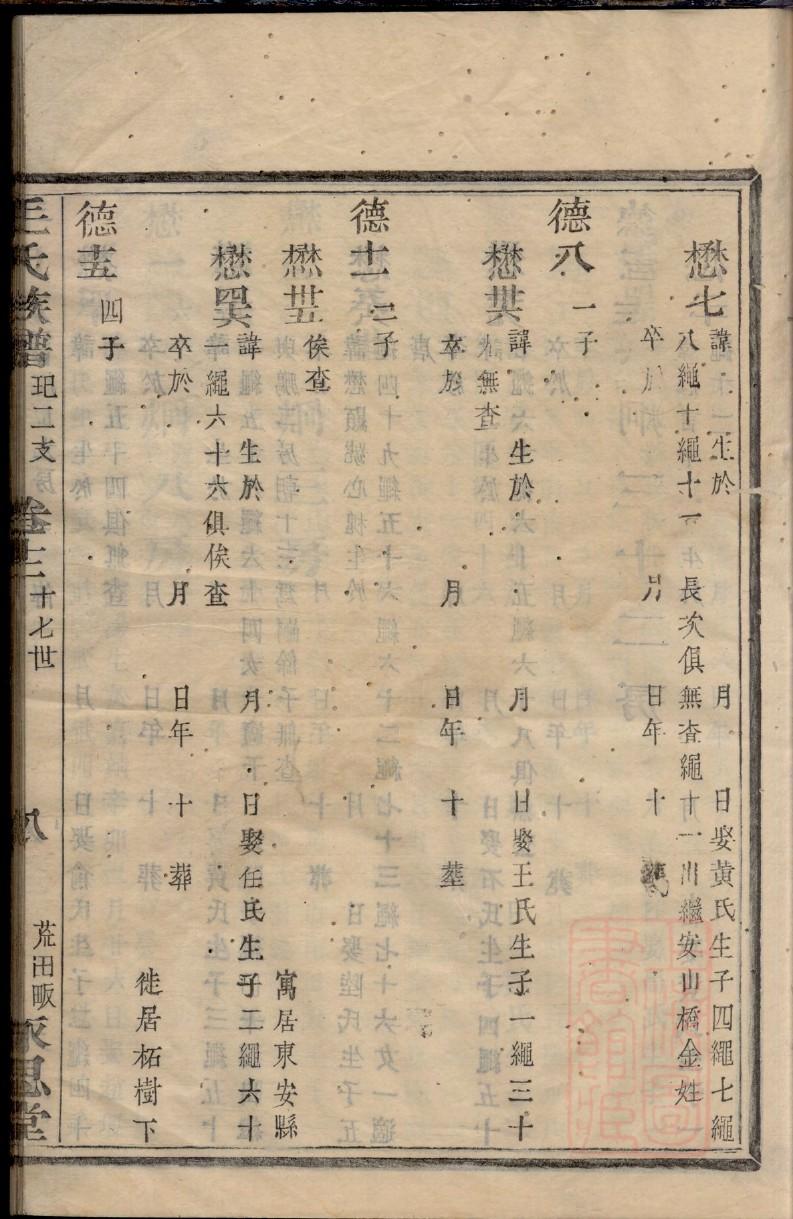 懋七 諱 生於 月 日娶黃氏生子四繩七繩
八繩十繩十一 長次俱無查繩十一出繼安山橋金姓
卒於 月 日年 十 葬
德八 一子
懋其 諱 生於 月 日娶王氏生子一繩三十
九無查
卒於 月 日年 十 葬
德十一 二子
懋世五 俟查
寓居東安縣
懋 諱 生於 月 日娶任氏生子二繩六十
一繩六十六俱俟查
卒於 月 日年 十 葬
徙居柘樹下
德十五 四子
王氏族譜 玘二支房 卷十三 十七世 八 荒田畈 永思堂